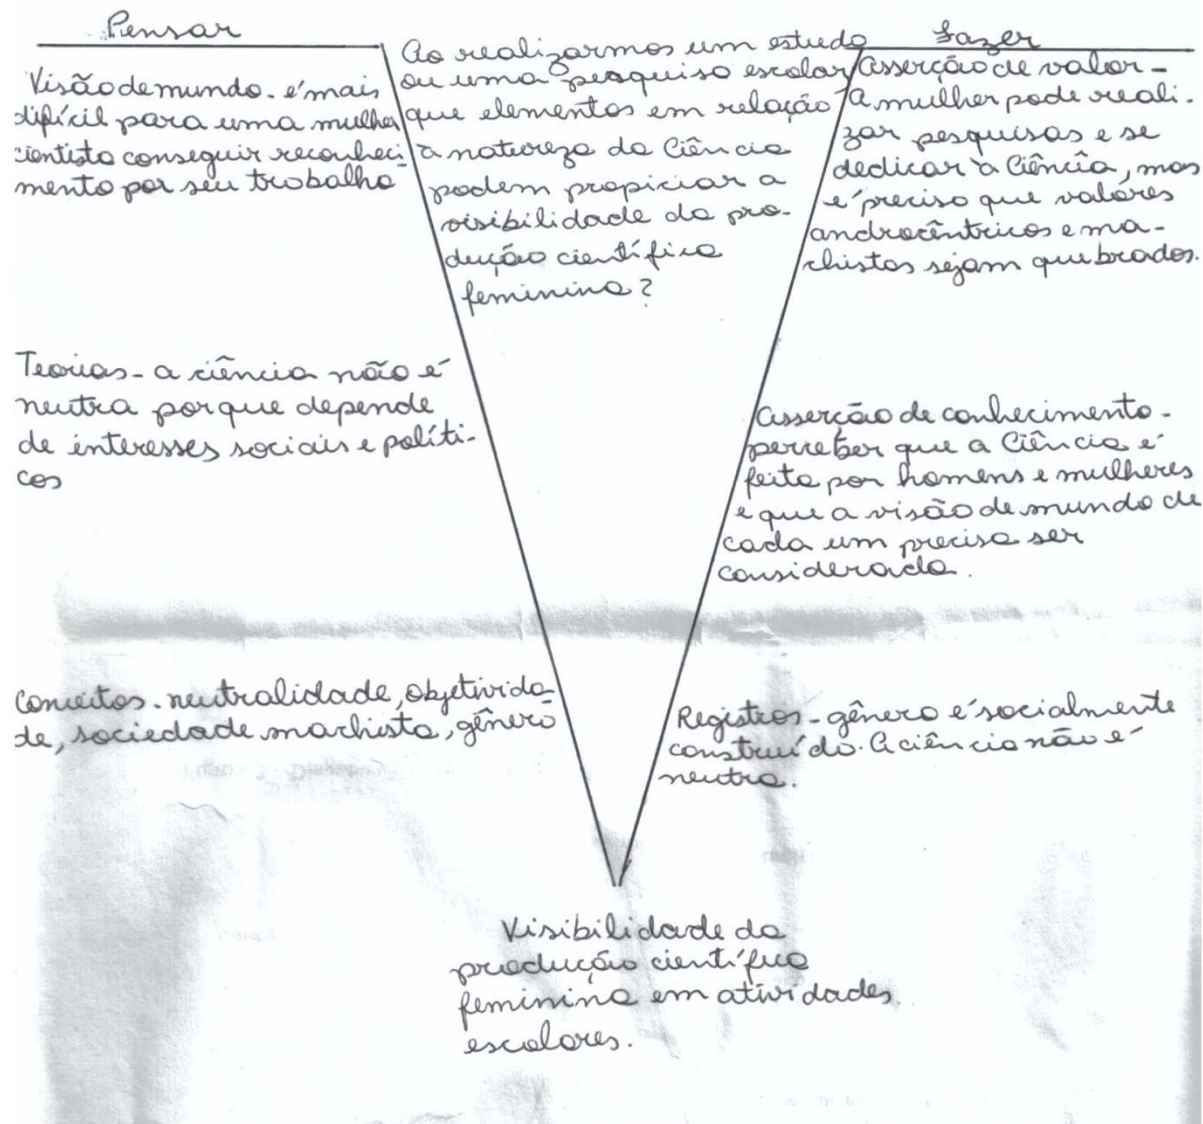 Pensar
Visão de mundo - é mais
difícil para uma mulher
cientista conseguir reconheci-
mento por seu trabalho
Teorias - a ciência não é
neutra porque depende
de interesses sociais e políti-
cos
Conceitos - neutralidade, objetivida-
de, sociedade machista, gênero
Ao realizarmos um estudo
ou uma pesquisa escolar
que elementos em relação
à natureza da Ciência
podem propiciar a
visibilidade da pro-
dução científica
feminina?
Fazer
Asserção de valor -
A mulher pode reali-
zar pesquisas e se
dedicar à Ciência, mas
é preciso que valores
androcêntricos e ma-
chistas sejam quebrados.
Asserção de conhecimento -
perceber que a Ciência é
feita por homens e mulheres
e que a visão de mundo de
cada um precisa ser
considerada.
Registros - gênero é socialmente
construído. A ciência não é
neutra.
Visibilidade da
produção científica
feminina em atividades
escolares.